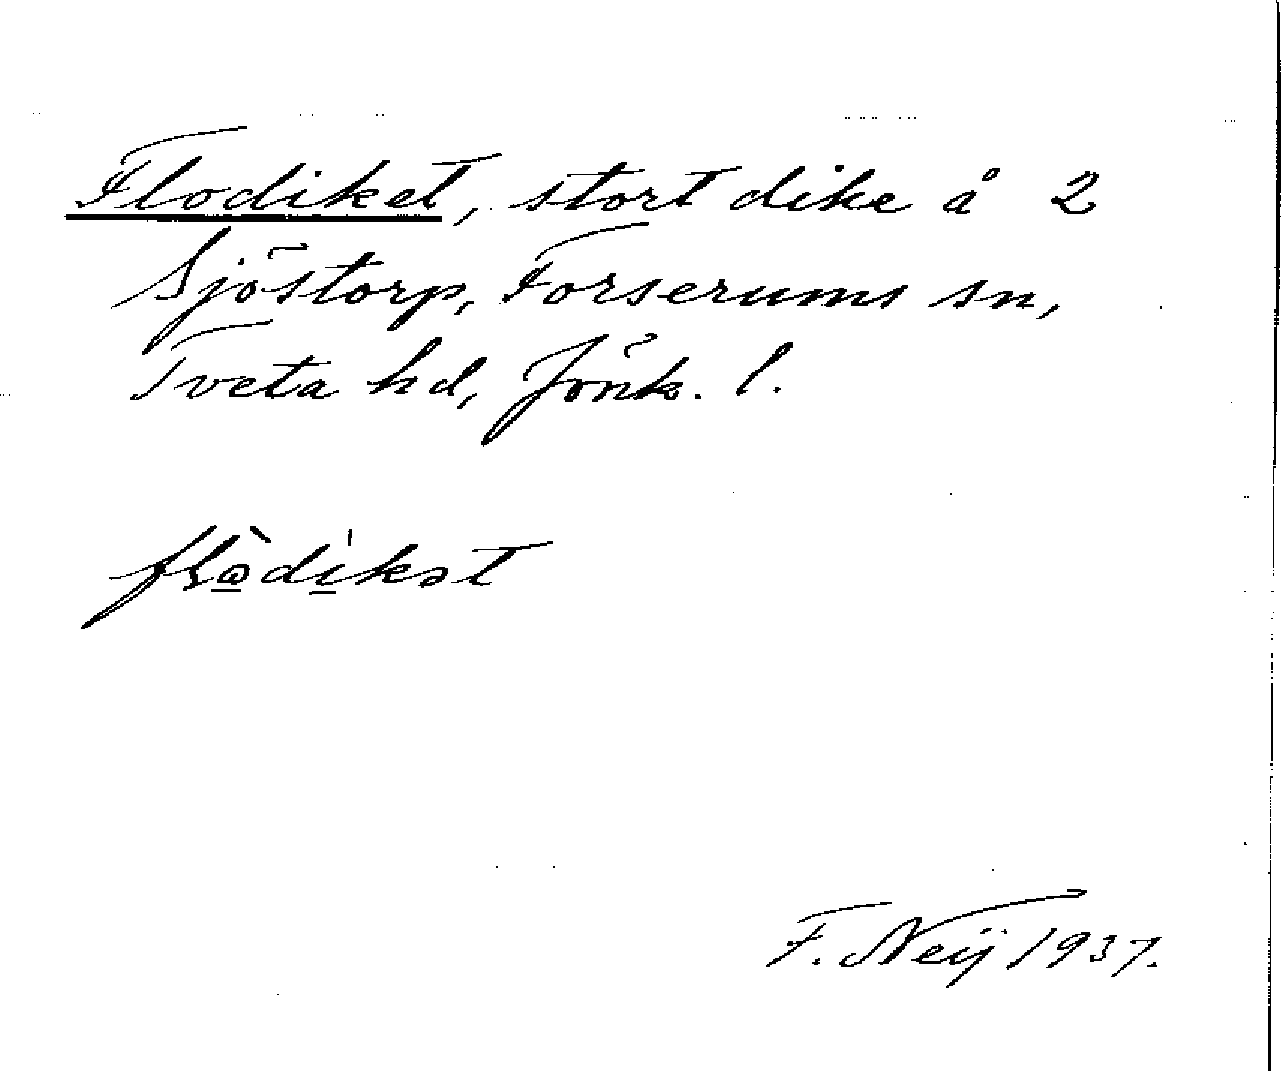 Flodiket, stort dike å 2
Sjöstorp, Forserums sn,
Tveta hd, Jönk. l.
flⱺ̀díkət
F. Neij 1937.